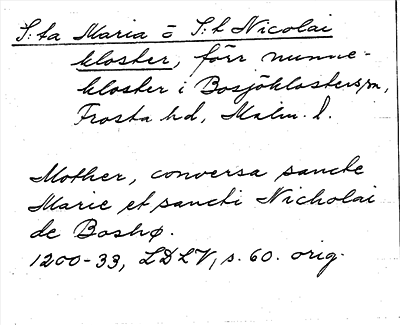 S:ta Maria o S:t Nicolai
kloster, förr nunne-
kloster i Bosjöklosters sn,
Frosta hd, Malm. l.
Mother, conversa sancte
Marie et sancti Nicholai
de Boshø.
1200-33, LDLV, s. 60. orig.